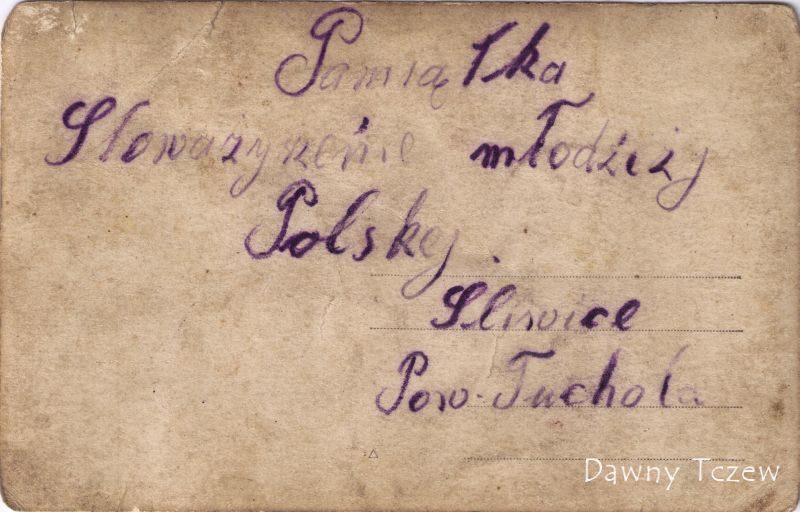 Pamiątka
Sloważyzenie młodzieży
Polskej.
Sliwice
Pow. Tuchola
Dawny Tczew